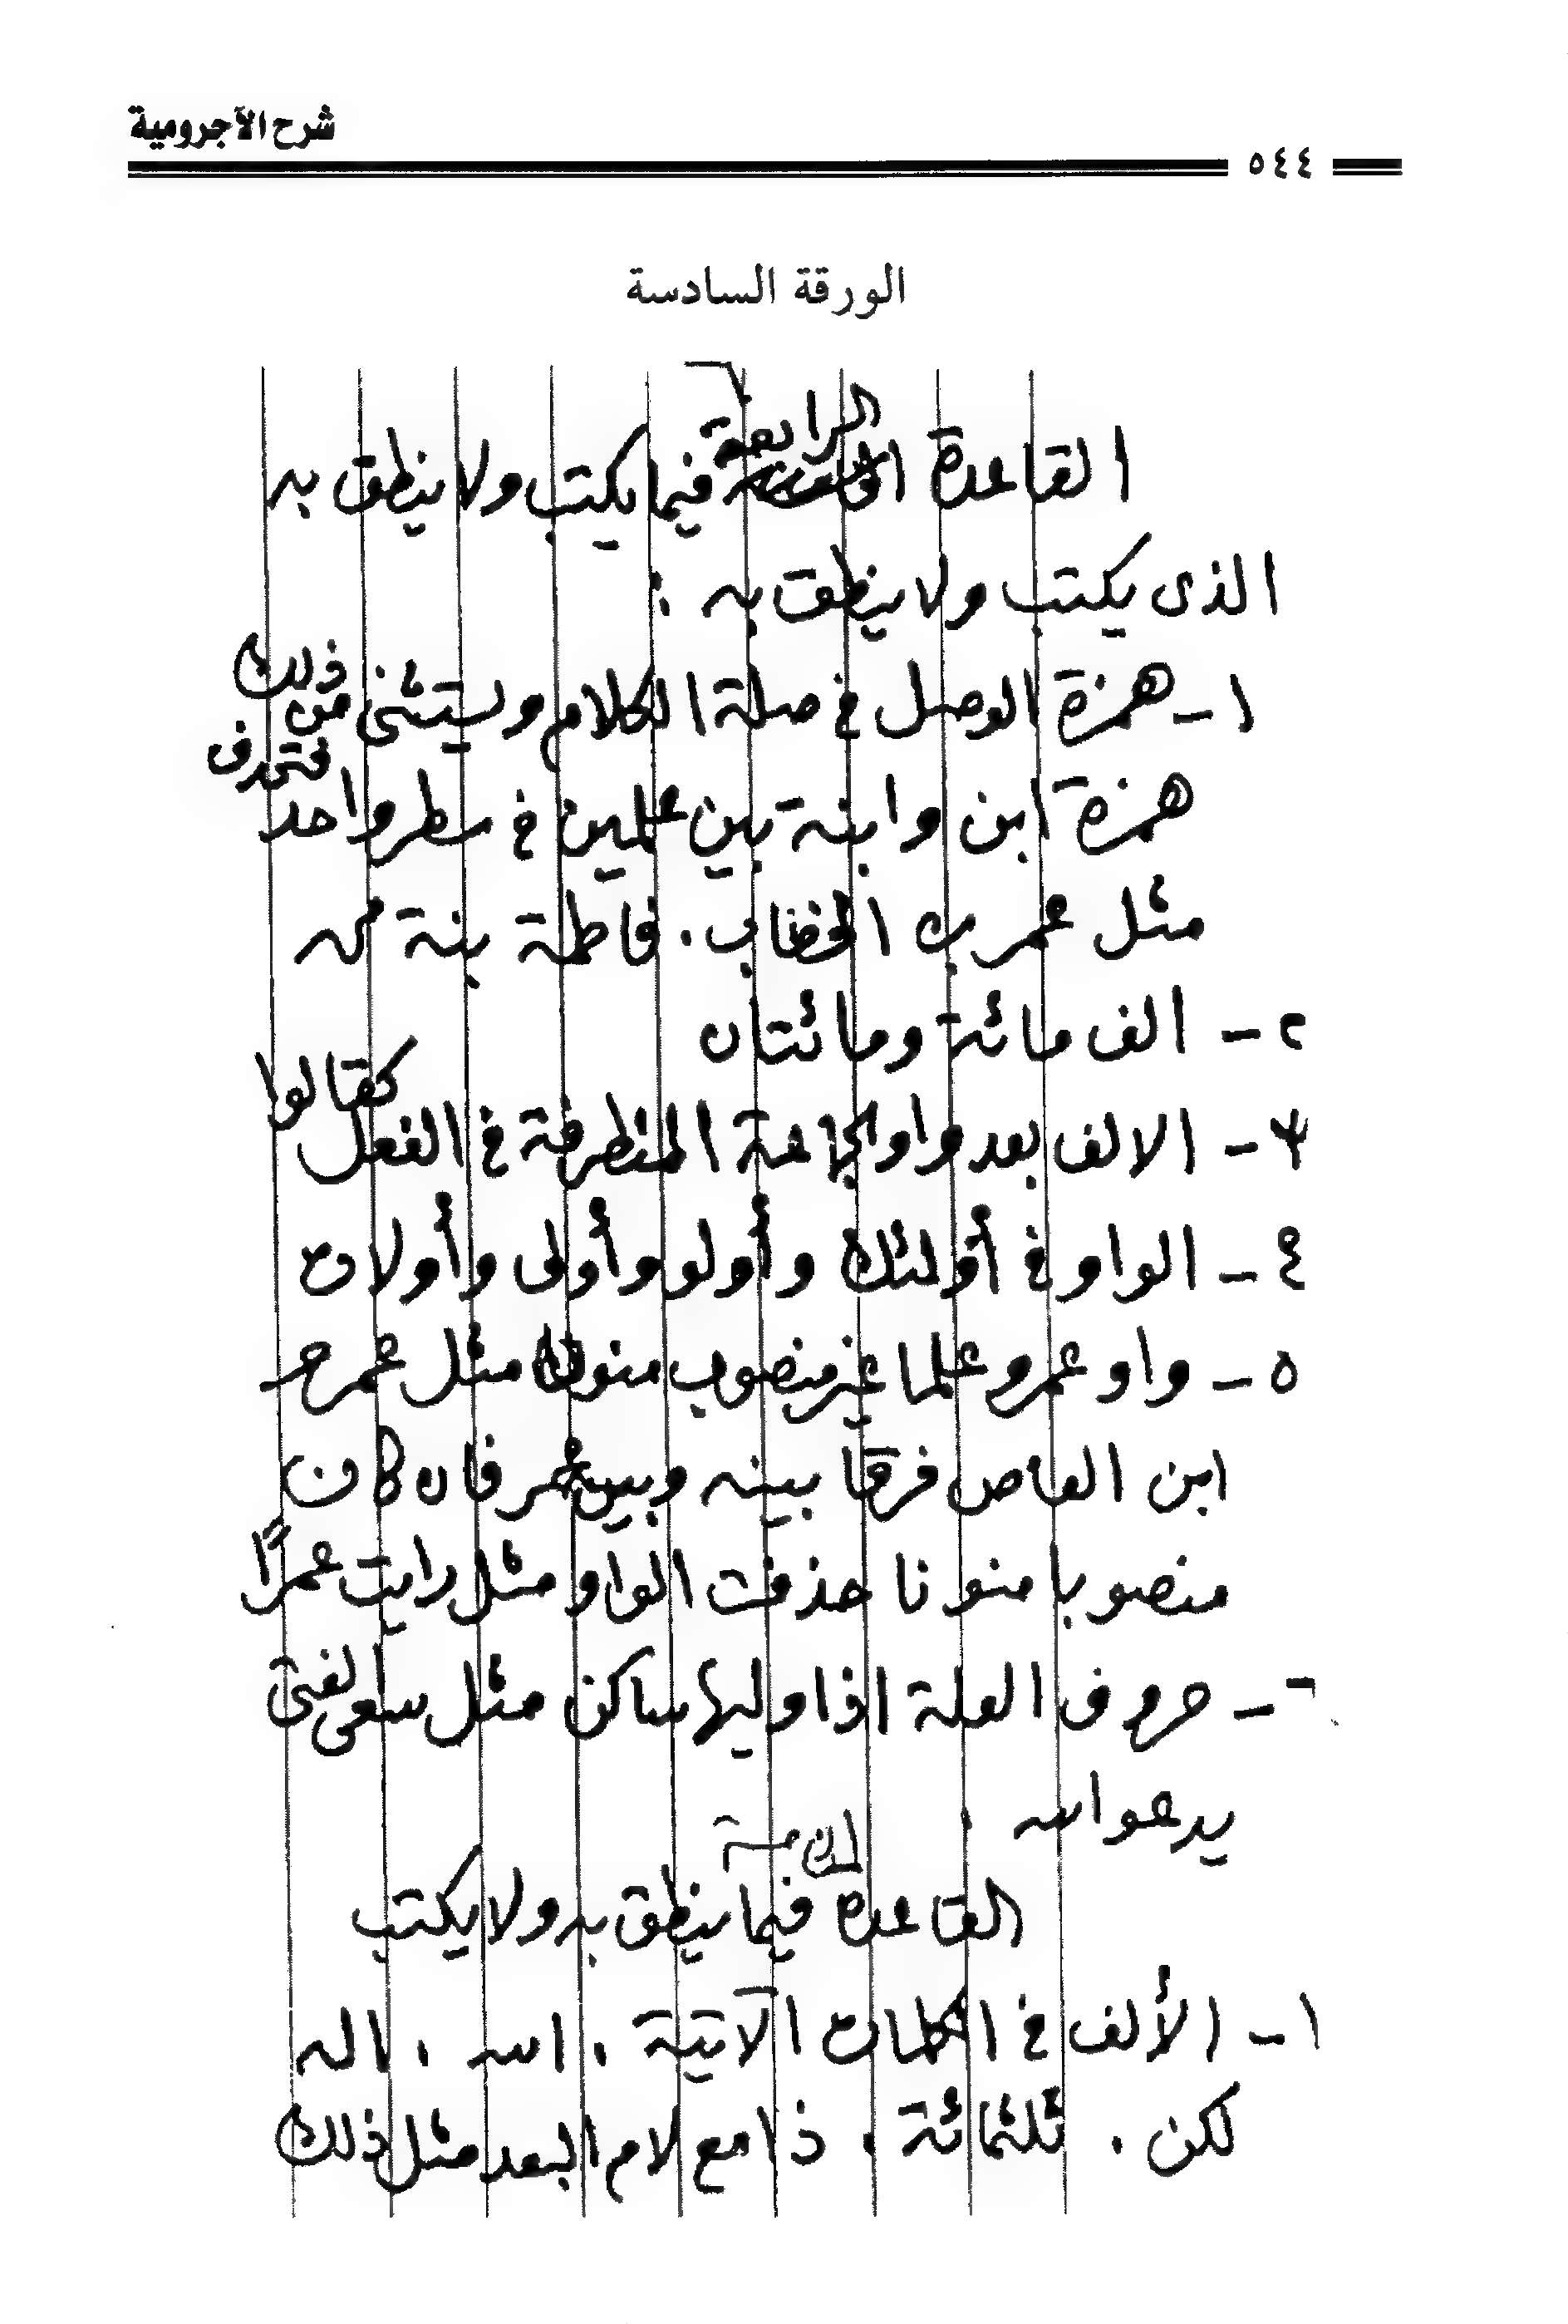 شرح الآجرومية
٥٤٤
الورقة السادسة
٦
القاعدة الرابعة فيما يكتب ولا ينطق به
الذى يكتب ولا ينطق به :
١ - همزة الوصل في صلة الكلام ويستثنى من ذلك
همزة ابن وابنة بين علمين في سطر واحد فتحذف
مثل عمر بن الخطاب . فاطمة بنة محمد
٢ - الف مائة ومائتان
٣ - الالف بعد واو الجماعة المتطرفة في الفعل كقالوا
٤ - الواو في أولئك وأولو وأولى وأولات
٥ - واو عمرو علما غير منصوب منون مثل عمرو
ابن العاص فرقا بينه وبين عمر فان كان
منصوبا منونا حذفت الواو مثل رايت عمرًا
٦ - حروف العلة اذا وليها ساكن مثل سعى الفتى
يدعو الله .
القاعدة الخامسة فيما ينطق به ولا يكتب
١ - الألف في الكلمات الآتية . الله . اله
لكن . ثلثمائة . ذا مع لام البعد مثل ذلك